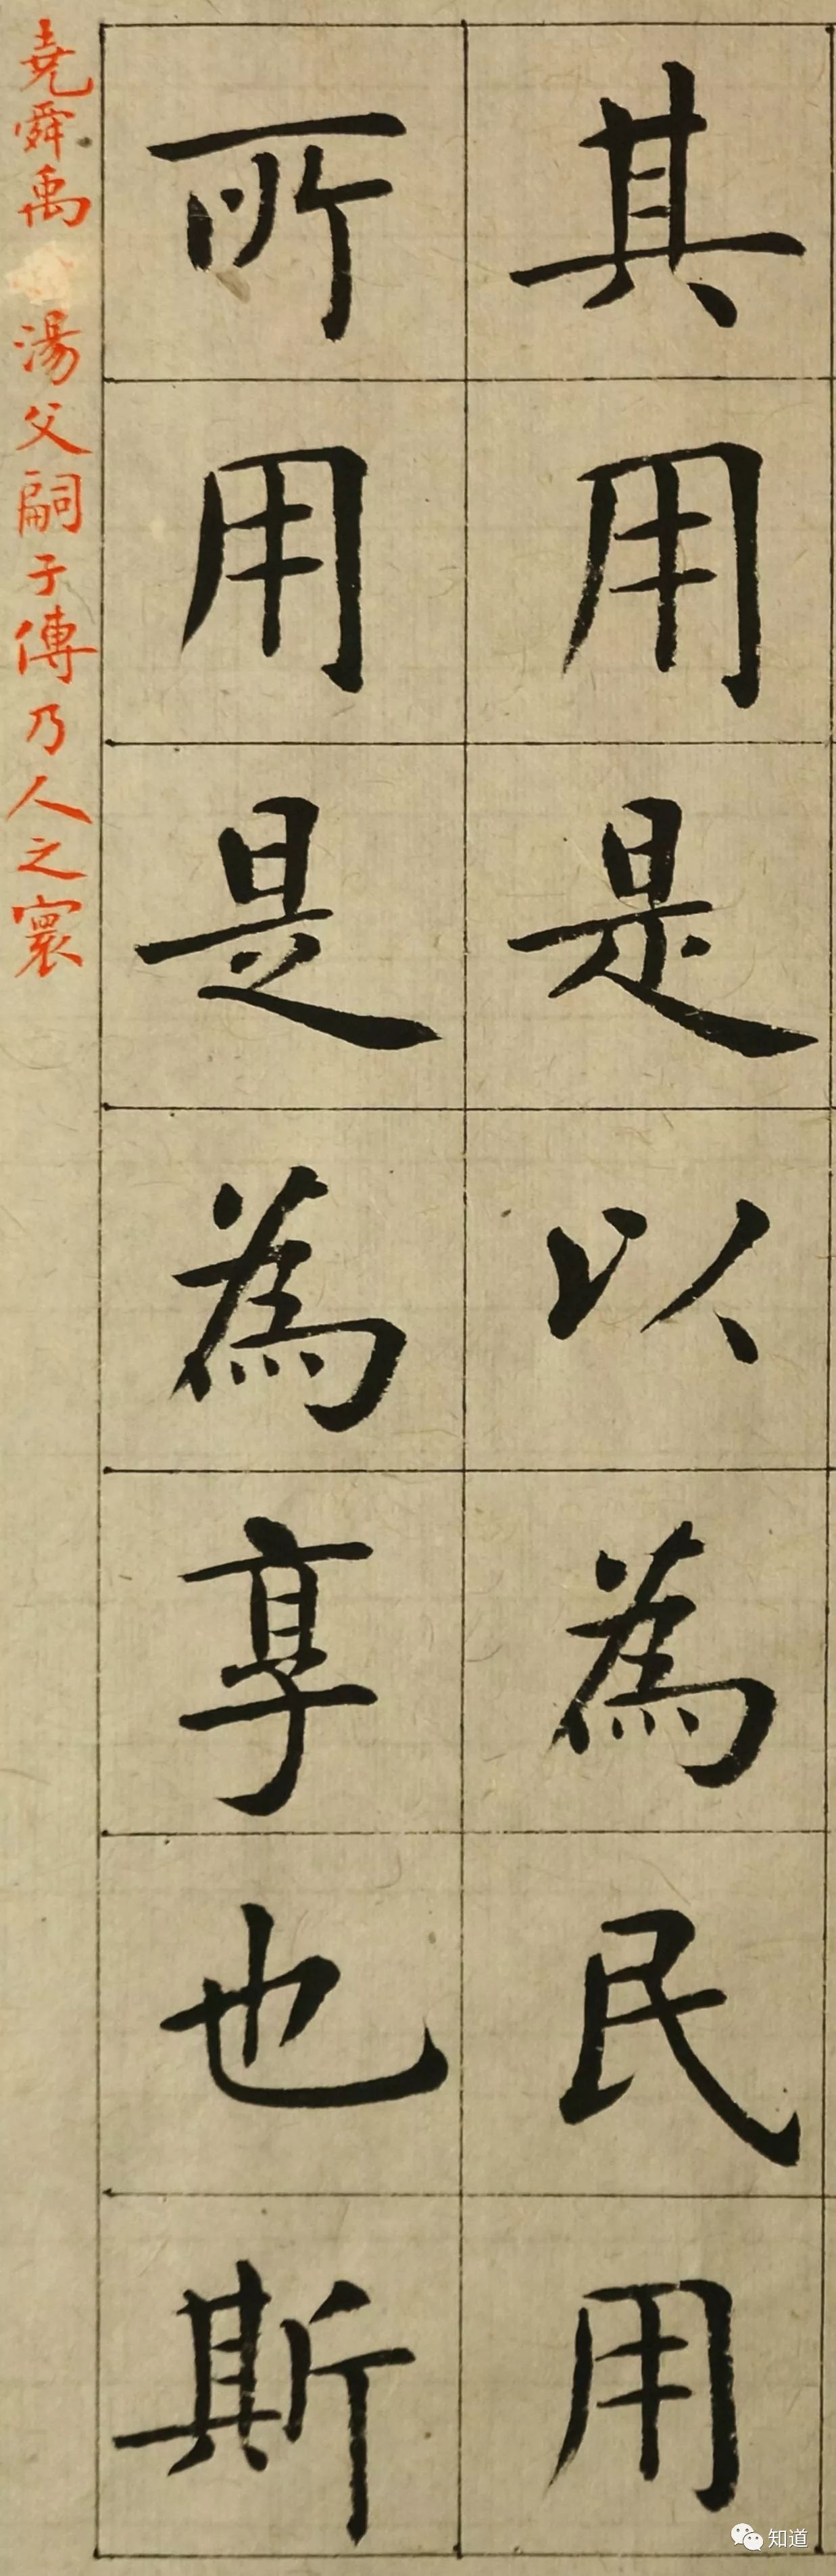 其用是以為民用
所用是為享也斯
堯舜禹湯父嗣子傳乃人之寰
知道